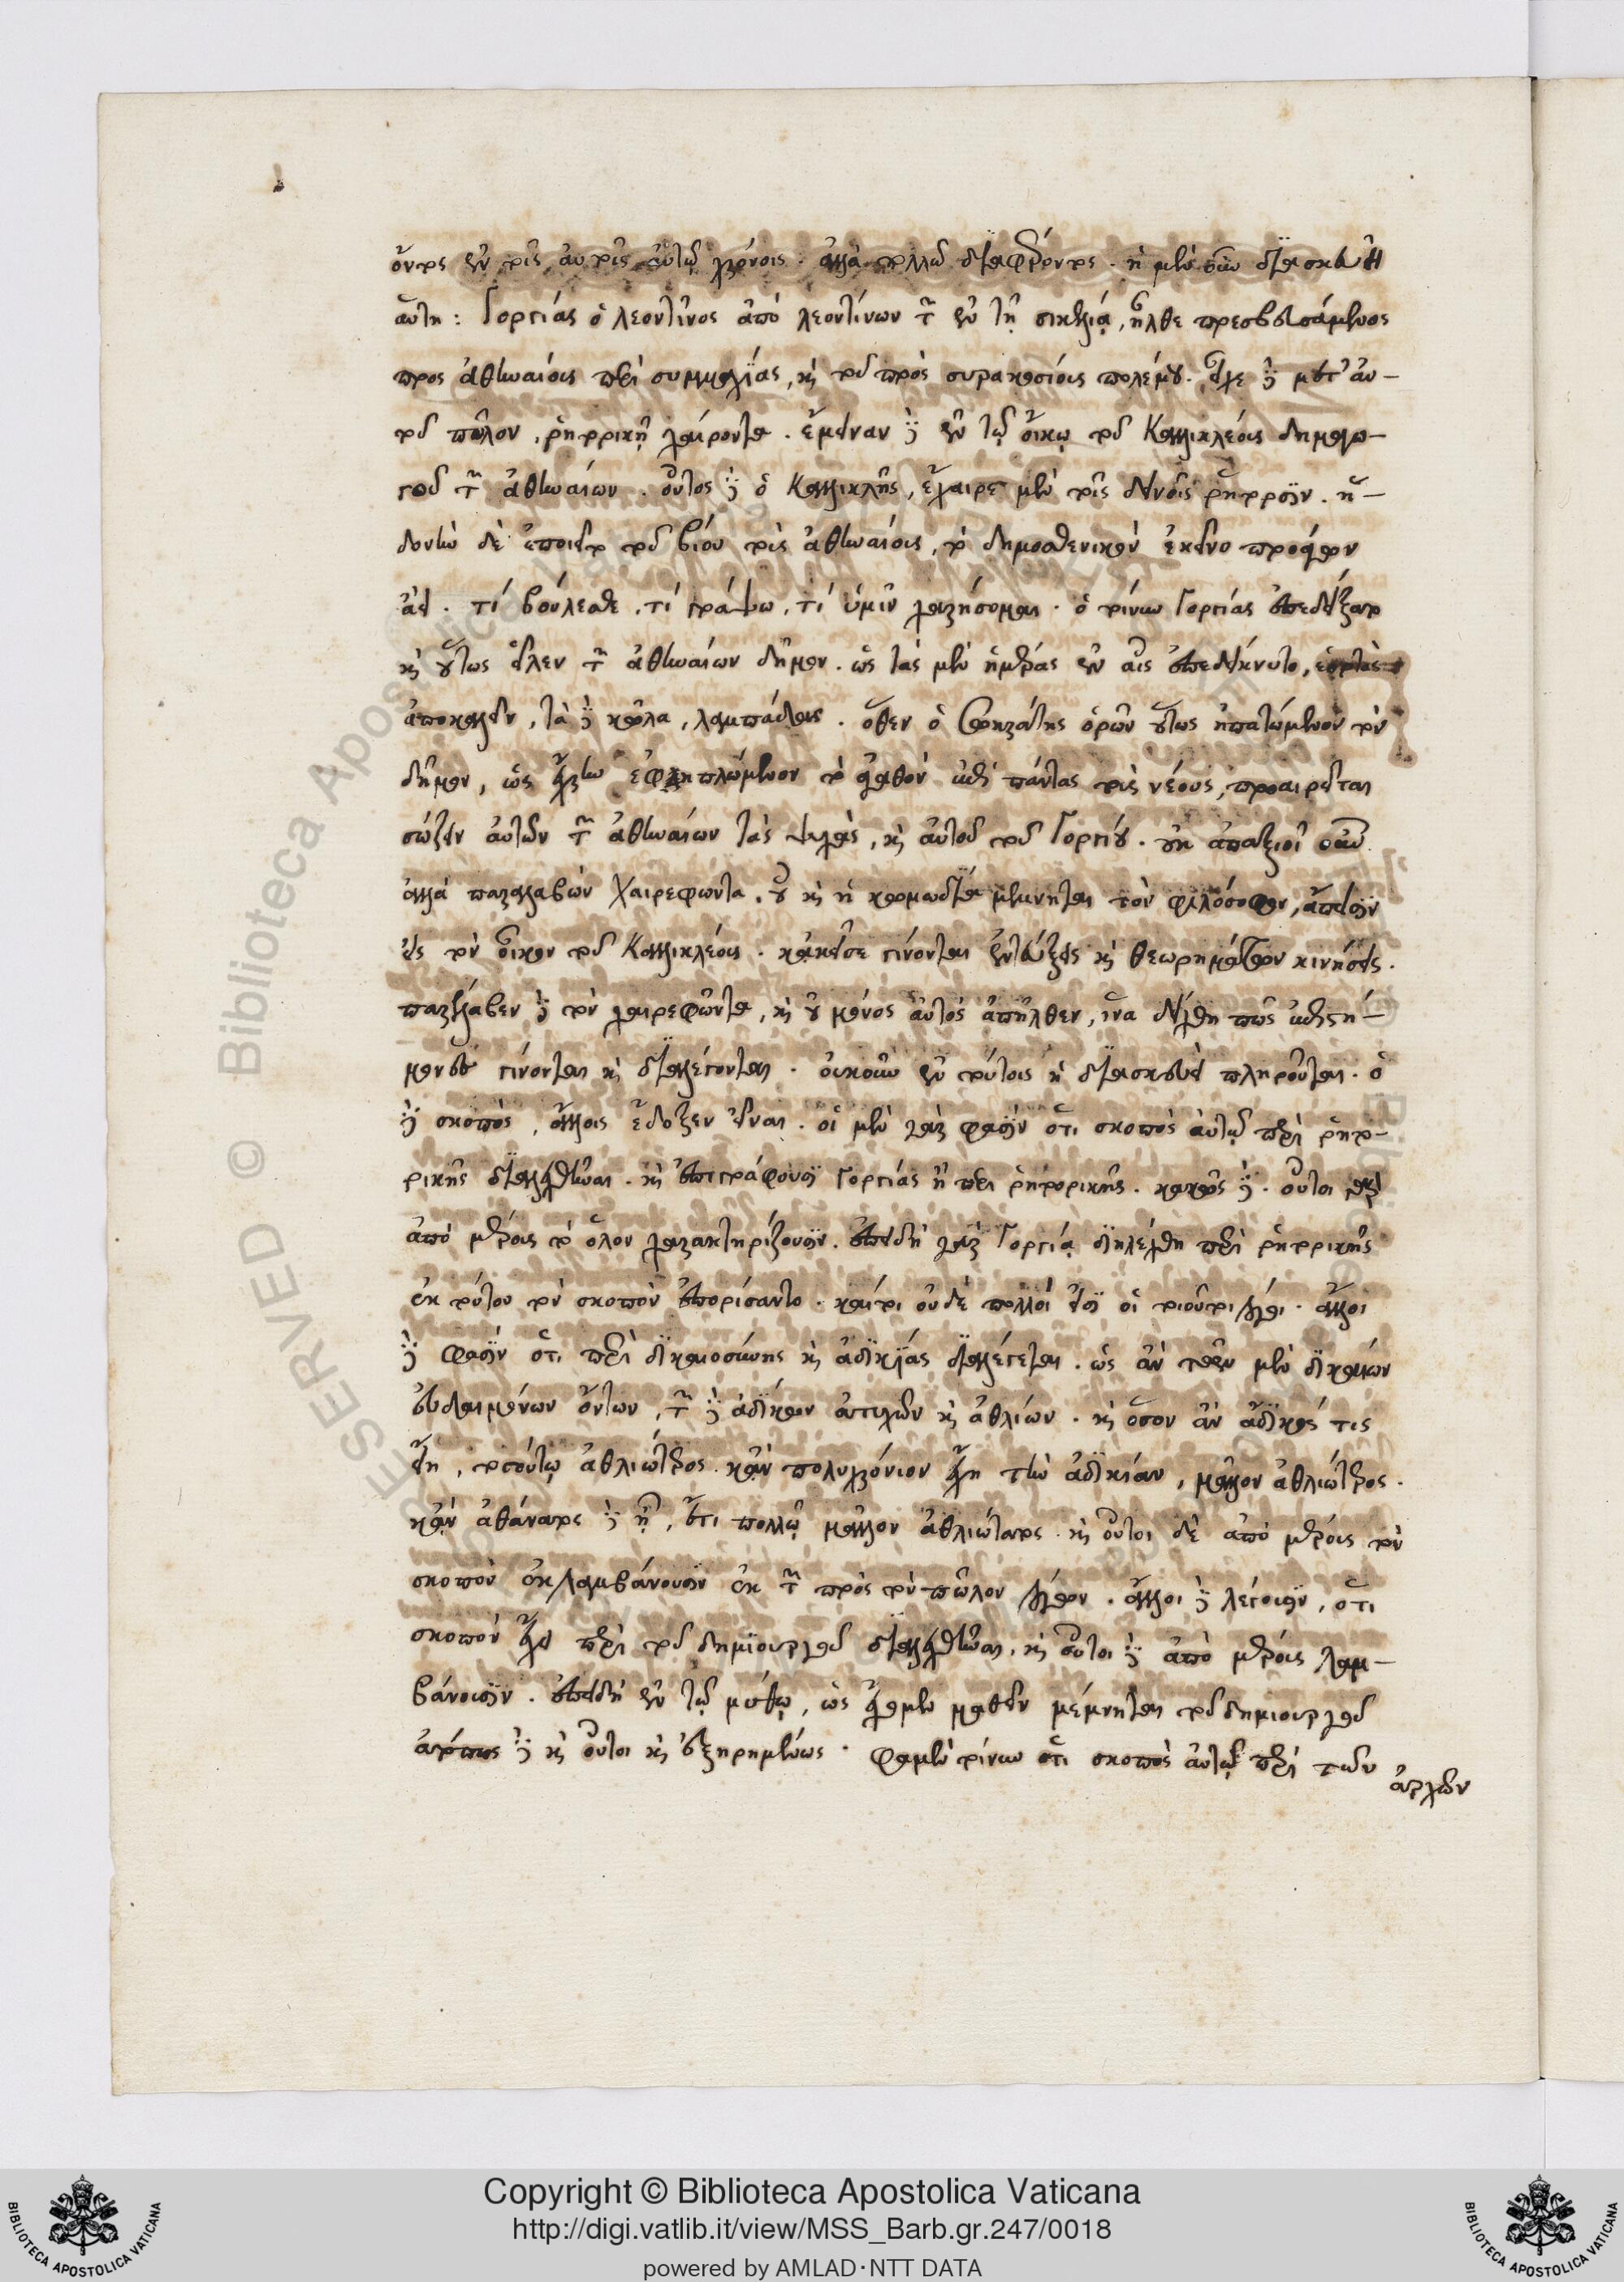 ὄντος ἐν τοῖς αὐτοῖς αὐτῷ χρόνοις. ἀλλὰ πολλῷ διαφέροντος. ἡ μὲν οὖν διασκευὴ
αὕτη: Γοργίας ὁ λεοντῖνος ἀπὸ λεοντίνων τῶν ἐν τῇ σικελίᾳ, ἦλθε πρεσβευσάμενος
προς ἀθηναίους περὶ συμμαχίας, καὶ τοῦ πρὸς συρακοσίους πολέμου. εἶχε δὲ μετ' αὐ-
τοῦ πῶλον, ῥητορικῇ χαίροντα. ἔμειναν δὲ ἐν τῷ οἴκῳ τοῦ Καλλικλέους δημαγω-
γοῦ τῶν ἀθηναίων. οὗτος δὲ ὁ Καλλικλῆς, ἔχαιρε μὲν τοῖς δεινοῖς ῥήτορσιν. ἡ-
δονὴν δὲ ἐποιεῖτο τοῦ βίου τοῖς ἀθηναίοις, τὸ δημοσθενικὸν ἐκεῖνο προφέρων
ἀεί. τί βούλεσθε, τί γράψω, τί ὑμῖν χαρίσομαι. ὁ τοίνυν Γοργίας ἐπεδείξατο
καὶ οὕτως εἷλεν τῶν ἀθηναίων δῆμον. ὡς τὰς μὲν ἡμέρας ἐν αἷς ἐπεδείκνυτο, ἑορτὰς
ἀποκαλεῖν, τὰ δὲ κῶλα, λαμπάδας. ὅθεν ὁ Σωκράτης ὁρῶν οὕτως ἠπατώμενον τὸν
δῆμον, ὡς ἔχειν ἐφηπλώμενον τὸ ἀγαθὸν ἐπὶ πάντας τοὺς νέους, προαιρεῖται
σώζειν αὐτῶν τῶν ἀθηναίων τὰς ψυχὰς, καὶ αὐτοῦ τοῦ Γοργίου. οὐκ ἀπαξιοῖ οὖν
ἀλλὰ παραλαβὼν Χαιρεφῶντα, οὗ καὶ ἡ κωμῳδία μέμνηται τὸν φιλόσοφον, ἄπεισιν
εἰς τὸν οἶκον τοῦ Καλλικλέους. κἀκεῖσε γίνονται ἐντεύξεις καὶ θεωρημάτων κινήσεις.
παρέλαβεν δὲ τὸν χαιρεφῶντα, καὶ οὐ μόνος αὐτὸς ἀπῆλθεν, ἵνα δείχθη πῶς ἐπιστή-
μονες γίνονται καὶ διαλέγονται. οὐκοῦν ἐν τούτοις ἡ διασκευὴ πληροῦται. ὁ
δὲ σκοπὸς, ἄλλοις ἔδοξεν εἶναι. οἱ μὲν γὰρ φασὶν ὅτι σκοπὸς αὐτῷ περὶ ῥητο-
ρικῆς διαλεχθῆναι. καὶ ἐπιγράφουσι Γοργίας ἢ περι ῥητορικῆς. κακῶς δέ. οὗτοι γὰρ
ἀπὸ μέρους τὸ ὅλον χαρακτηρίζουσιν. ἐπειδὴ γὰρ Γοργίᾳ διηλέχθη περὶ ῥητορικῆς
ἐκ τούτου τὸν σκοπὸν ἐπορίσαντο. καίτοι οὐδὲ πολλοί εἰσι οἱ τοιοῦτοι λόγοι. ἄλλοι
δὲ φασὶν ὅτι περὶ δικαιοσύνης καὶ ἀδικίας διαλέγεται. ὡς ἂν τῶν μὲν δικαίων
εὐδαιμόνων ὄντων, τῶν δὲ ἀδίκων ἀτυχῶν καὶ ἀθλίων. καὶ ὅσον ἂν ἄδικός τις
εἴη, τοσούτῳ ἀθλιώτερος. κἂν πολυχρόνιον ἔχη τὴν ἀδικίαν, μᾶλλον ἀθλιώτερος.
κἂν ἀθάνατος δὲ ᾖ, ἔτι πολλῷ μᾶλλον ἀθλιώτατος. καὶ οὗτοι δὲ ἀπὸ μέρους τὸν
σκοπὸν ἐκλαμβάνουσιν ἐκ τῶν πρὸς τὸν πῶλον λόγων. ἄλλοι δὲ λέγουσιν, ὅτι
σκοπὸν ἔχει περὶ τοῦ δημιουργοῦ διαλεχθῆναι, καὶ οὗτοι δὲ ἀπὸ μέρους λαμ-
βάνουσιν. ἐπειδὴ ἐν τῷ μύθῳ, ὡς ἔχομεν μαθεῖν μέμνηται τοῦ δημιουργοῦ
ἀτόπως δὲ καὶ οὗτοι καὶ ἐξηρημένως. φαμὲν τοίνυν ὅτι σκοπὸς αὐτῷ περὶ τῶν
ἀρχῶν
Copyright © Biblioteca Apostolica Vaticana
http://digi.vatlib.it/view/MSS_Barb.gr.247/0018
powered by AMLAD·NTT DATA